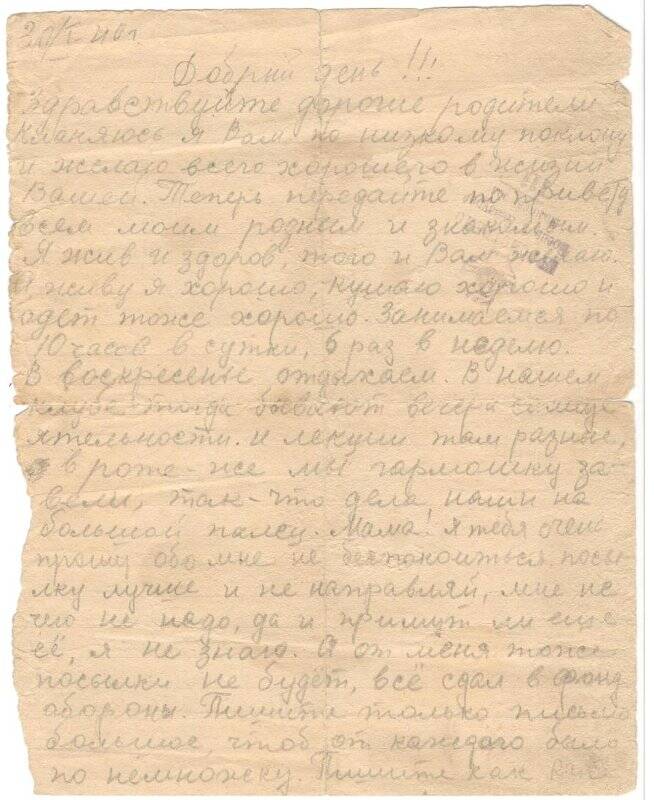 Добрий день!!!
Здравствуйте дорогие родители
Кланяюсь я Вам по низкому поклону
и желаю всего хорошего в жизни
Вашей. Теперь передайте по привету
всем моим родным и знакомым.
Я жив и здоров, того и Вам желаю.
И живу я хорошо, кушаю хорошо и
одет тоже хорошо. Занимаемся по
10 часов в сутки, 6 раз в неделю.
В воскресенье отдыхаем. В нашем
клубе тогда бывают вечера самоде
ятельности. и лекции там разные,
в роте-же мы гармошку за-
вели, так-что дела наши на
большой палец. Мама! я тебя очень
прошу обо мне не беспокоиться, посы
лку лучше и не направляй, мне не
чего не надо, да и примут ли еще
её, я не знаю. А от меня тоже
посылки не будет, всё сдал в фонд
обороны. Пишите только письмо
большое, чтоб от каждого было
по немножку. Пишите как